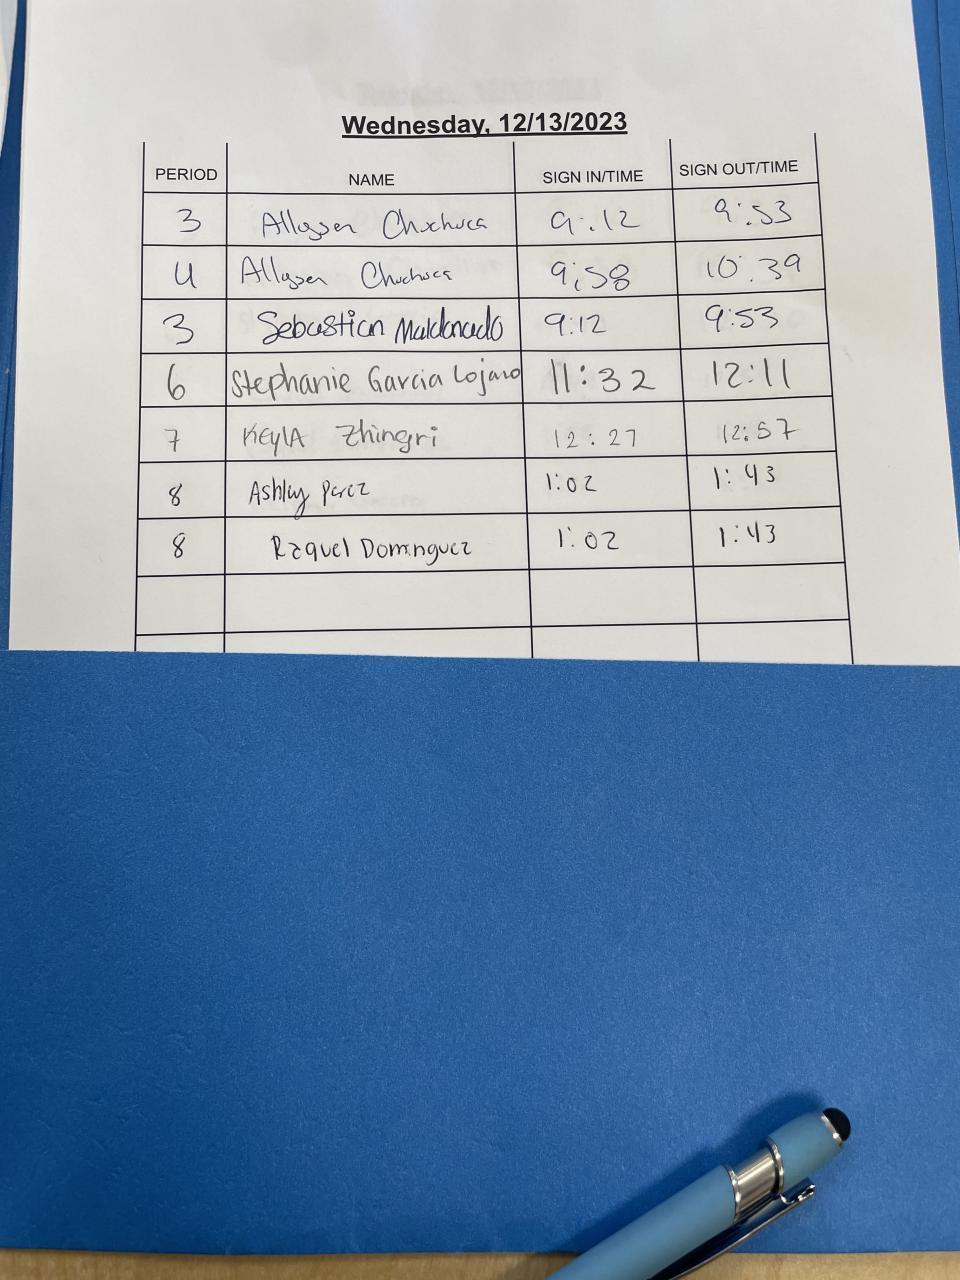 Wednesday, 12/13/2023
PERIOD NAME SIGN IN/TIME SIGN OUT/TIME
3 Allyson Chuchuca 9:12 9:53
4 Allyson Chuchuca 9:58 10:39
3 Sebastian Maldonado 9:12 9:53
6 Stephanie Garcia Lojano 11:32 12:11
7 KEylA Zhingri 12:27 12:57
8 Ashley Perez 1:02 1:43
8 Raquel Dominguez 1:02 1:43